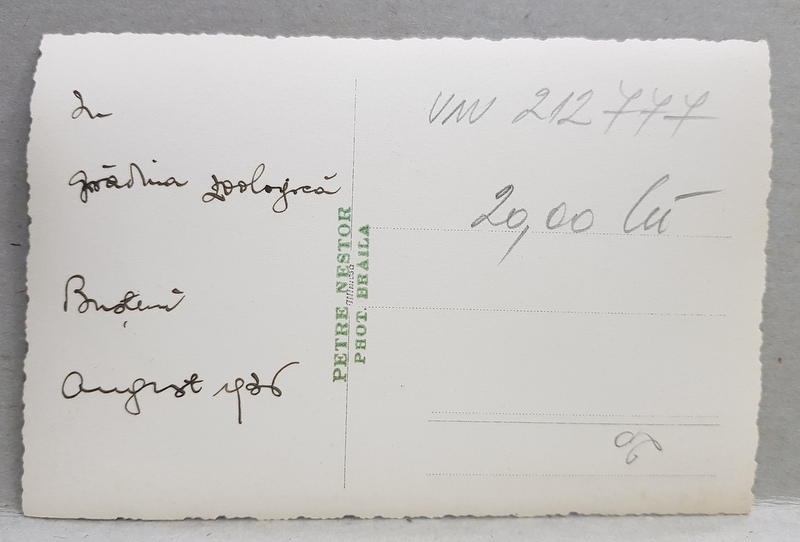 In
grădina zoologică
Bușteni
August 1936
PETRE NESTOR
PHOT. BRĂILA
VNV 212777
20,00 lei